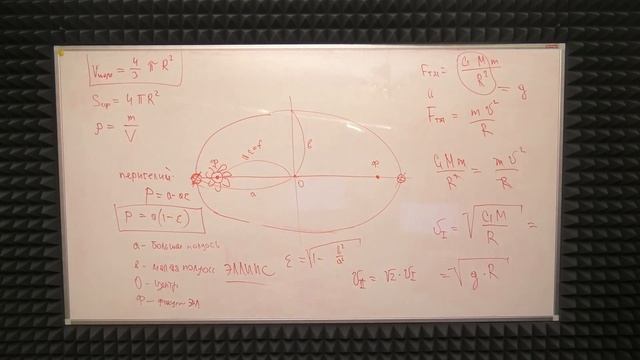 Vшара = 4/3 π R²
Sшар = 4 π R²
ρ = m/V
перигелий:
P = a - aε
P = a(1 - ε)
a - большая полуось
в - малая полуось
O - центр
Ф - фокус элл
ЭЛЛИПС
ε = √(1 - в²/a²)
Ф
в
a
O
Ф
Fтяг = G M m / R² = g
и
Fтяг = m υ² / R
G M m / R² = m υ² / R
υI = √(G M / R) =
= √(g · R)
υII = √2 · υI